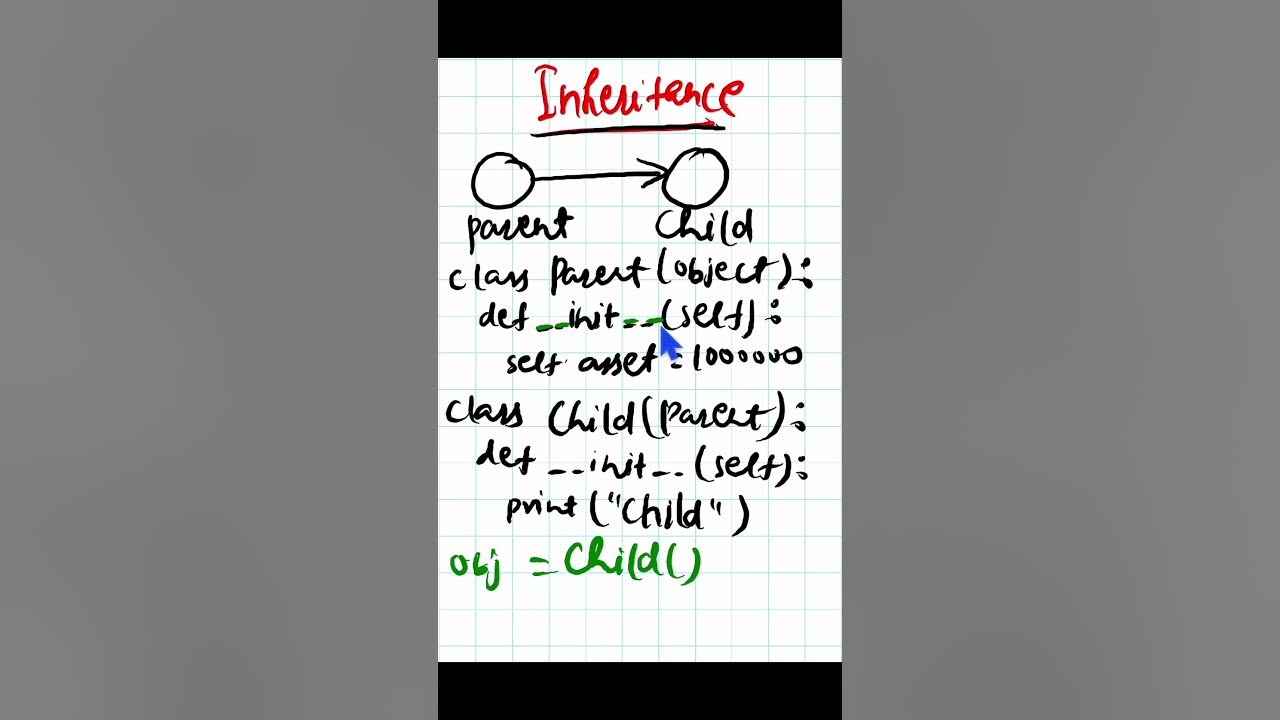 Inheritance
parent Child
class Parent(object):
def __init__(self):
self.asset = 1000000
class Child(Parent):
def __init__(self):
print("Child")
obj = Child()